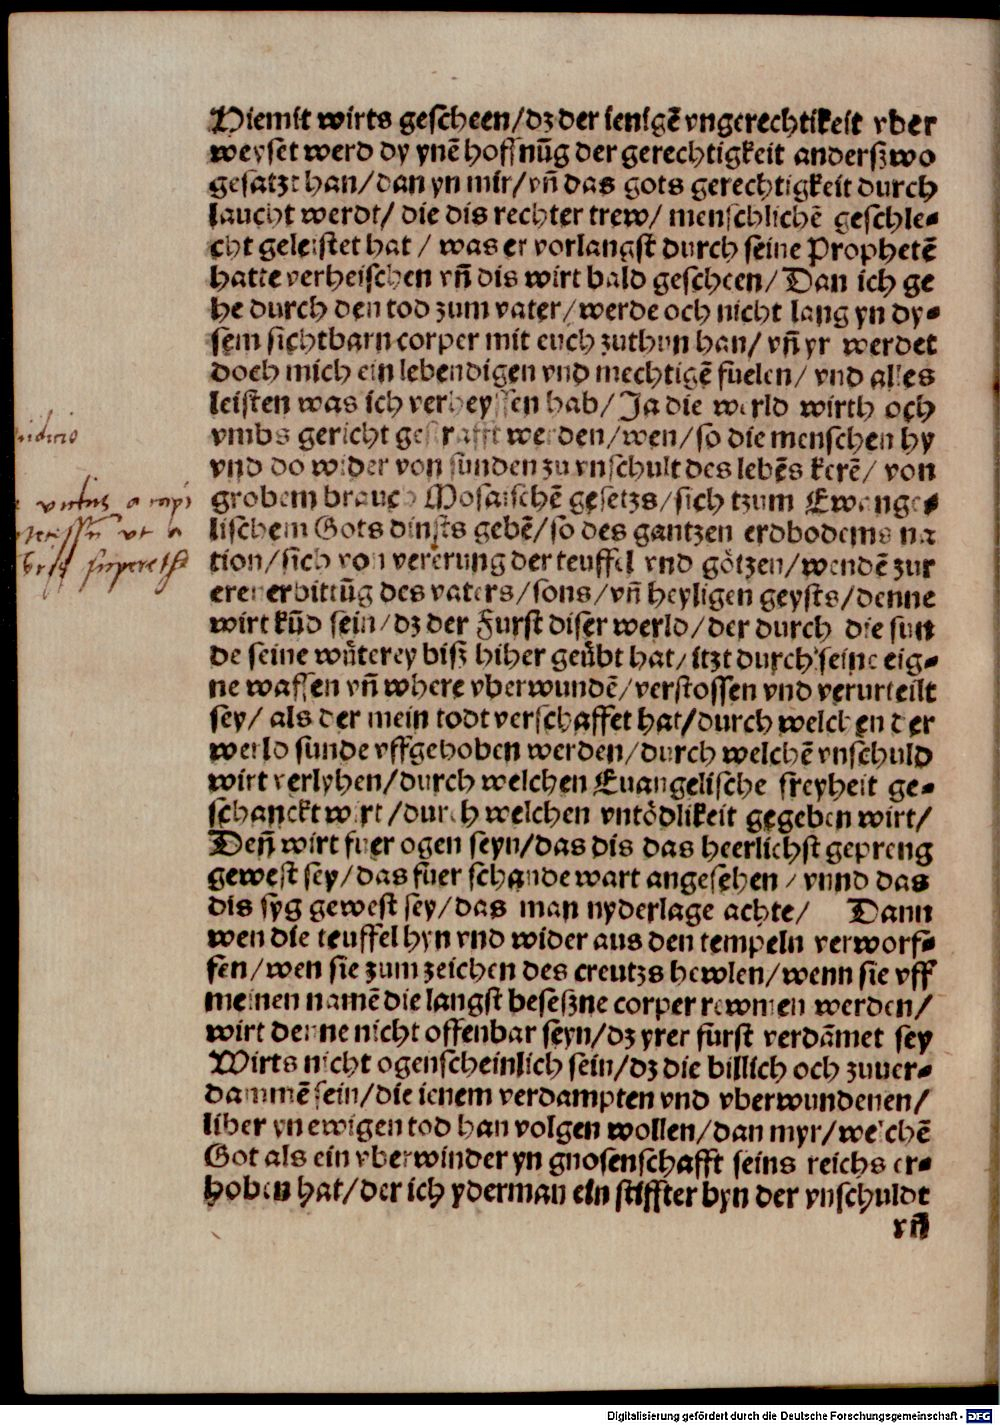 Hiemit wirts gescheen/dz der ienigē vngerechtikeit vber
weyset werd dy ynē hoffnūg der gerechtigkeit anderßwo
gesatzt han/dan yn mir/vn̄ das gots gerechtigkeit durch
laucht werdt/ die dis rechter trew/ menschlichē geschle-
cht geleistet hat / was er vorlangst durch seine Prophetē
hatte verheischen vn̄ dis wirt bald gescheen/ Dan ich ge
he durch den tod zum vater/werde och nicht lang yn dy-
sem sichtbarn corper mit euch zuthun han/ vn̄ yr werdet
doch mich ein lebendigen vnd mechtigē fuelen/ vnd alles
leisten was ich verheyssen hab/ Ja die werld wirth och
vmbs gericht gestrafft werden/wen/so die menschen hy
vnd do wider von sunden zu vnschult des lebēs kerē/ von
grobem brauch Mosaischē gesetzs/sich tzum Ewange-
lischem Gots dinsts gebē/so des gantzen erdbodems na
tion/sich von vererung der teuffel vnd götzen/wendē zur
ererbittūg des vaters/sons/vn̄ heyligen geysts/denne
wirt kūd sein/dz der Furst diser werld/der durch die sun
de seine wüterey biß hiher geübt hat/itzt durch seine eig-
ne waffen vn̄ where vberwundē/verstossen vnd verurteilt
sey/ als der mein todt verschaffet hat/durch welchen der
werld sunde vffgehoben werden/durch welchē vnschuld
wirt verlyhen/durch welchen Euangelische freyheit ge-
schanckt wirt/durch welchen vntödlikeit gegeben wirt/
Den̄ wirt fuer ogen seyn/das dis das heerlichst gepreng
gewest sey/das fuer schande wart angesehen / vnnd das
dis syg gewest sey/das man nyderlage achte/ Dann
wen die teuffel hyn vnd wider aus den tempeln verworf-
fen/wen sie zum zeichen des creutzs hewlen/wenn sie vff
meinen namē die langst beseßne corper rewmen werden/
wirt denne nicht offenbar seyn/dz yrer furst verdāmet sey
Wirts nicht ogenscheinlich sein/dz die billich och zuuer-
dammē sein/die ienem verdampten vnd vberwundenen/
liber yn ewigen tod han volgen wollen/dan myr/welchē
Got als ein vberwinder yn gnosenschafft seins reichs er-
hoben hat/der ich yderman ein stiffter byn der vnschuldt
vn̄
Digitalisierung gefördert durch die Deutsche Forschungsgemeinschaft - DFG